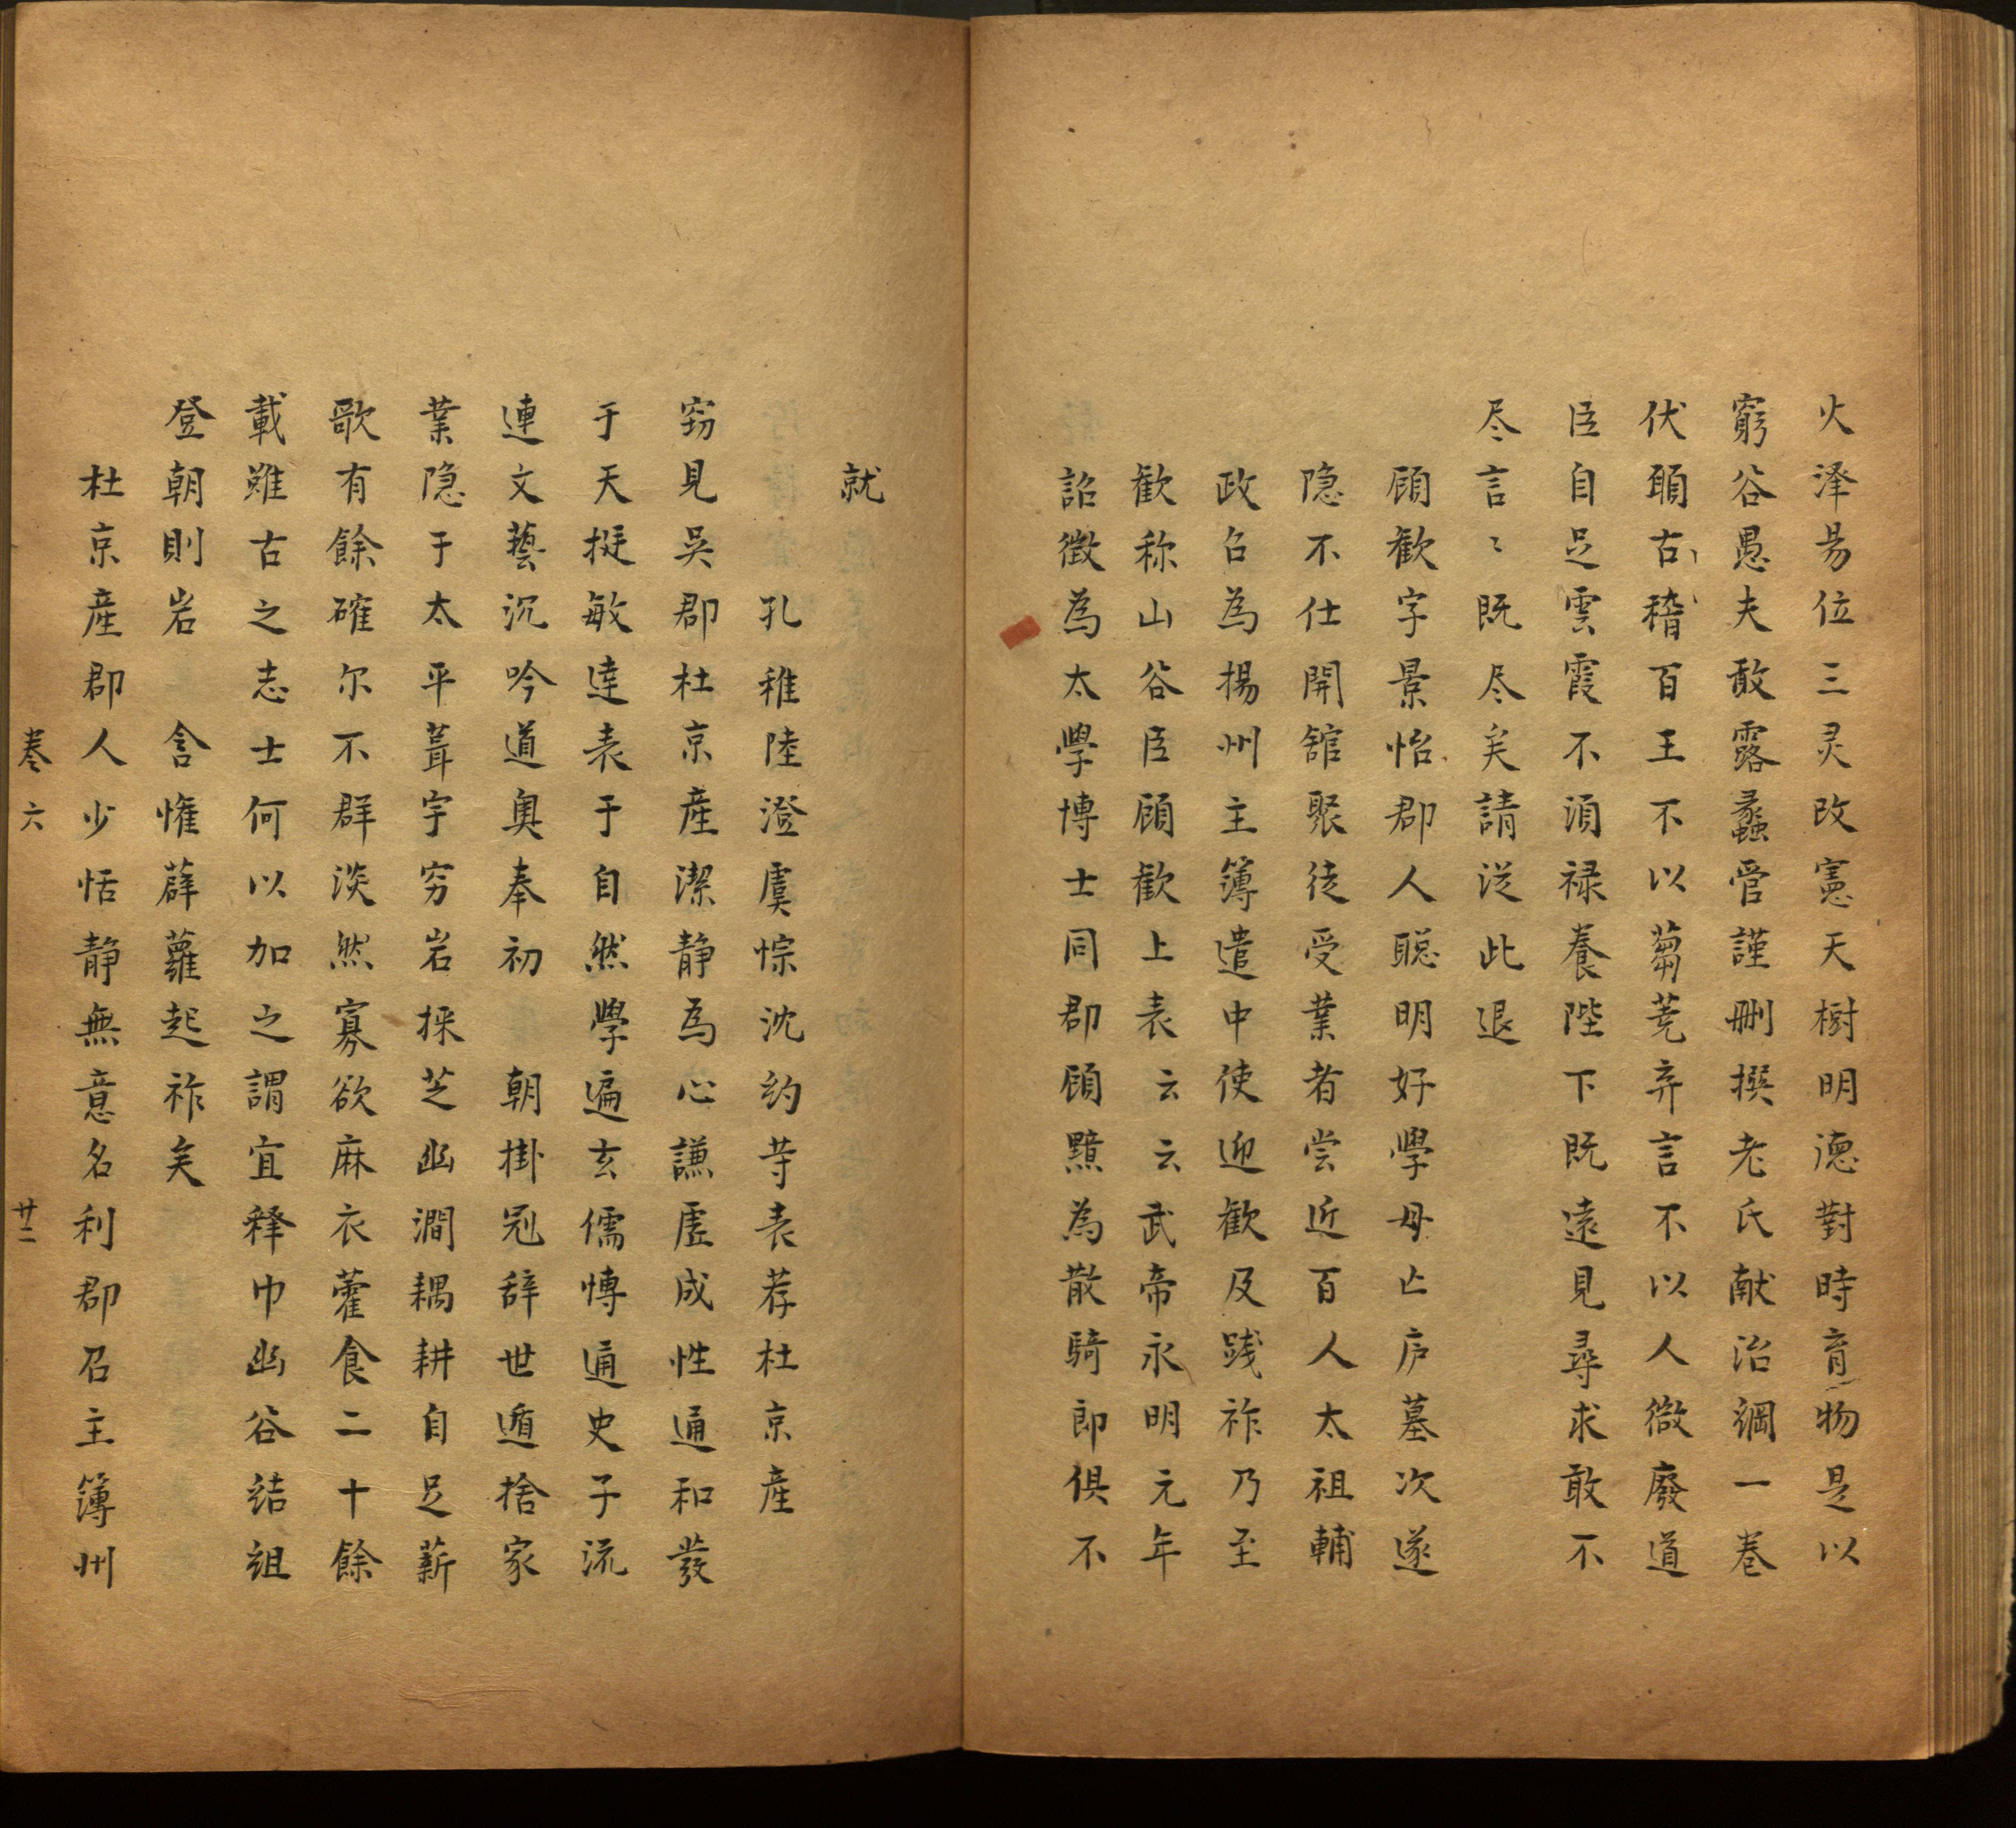 火泽易位三灵改憲天樹明德對時育物是以
窮谷愚夫敢露蠡管謹刪撰老氏献治綱一卷
伏願古稽百王不以蒭蕘弃言不以人微廢道
臣自足雲霞不湏禄養陛下既遠見尋求敢不
尽言〻既尽矣請従此退
顧歡字景怡郡人聰明好學母亡庐墓次遂
隐不仕開舘聚徒受業者尝近百人太祖輔
政召為揚州主簿遣中使迎歡及践祚乃至
歡称山谷臣顧歡上表云云武帝永明元年
詔徵為太學博士同郡顧黯為散騎郎俱不
就
孔稚陸澄虞悰沈約䒭表荐杜京産
窃見吳郡杜京產潔静為心謙虚成性通和發
于天挺敏達表于自然學遍玄儒博通史子流
連文藝沉吟道奧奉初朝掛冠辞世遁捨家
業隐于太平葺宇穷岩採芝幽澗耦耕自足薪
歌有餘確尔不群淡然寡欲麻衣藿食二十餘
載雖古之志士何以加之謂宜释巾幽谷结组
登朝則岩含懽薜蘿起祚矣
杜京産郡人少恬静無意名利郡召主簿州
卷六
廿二